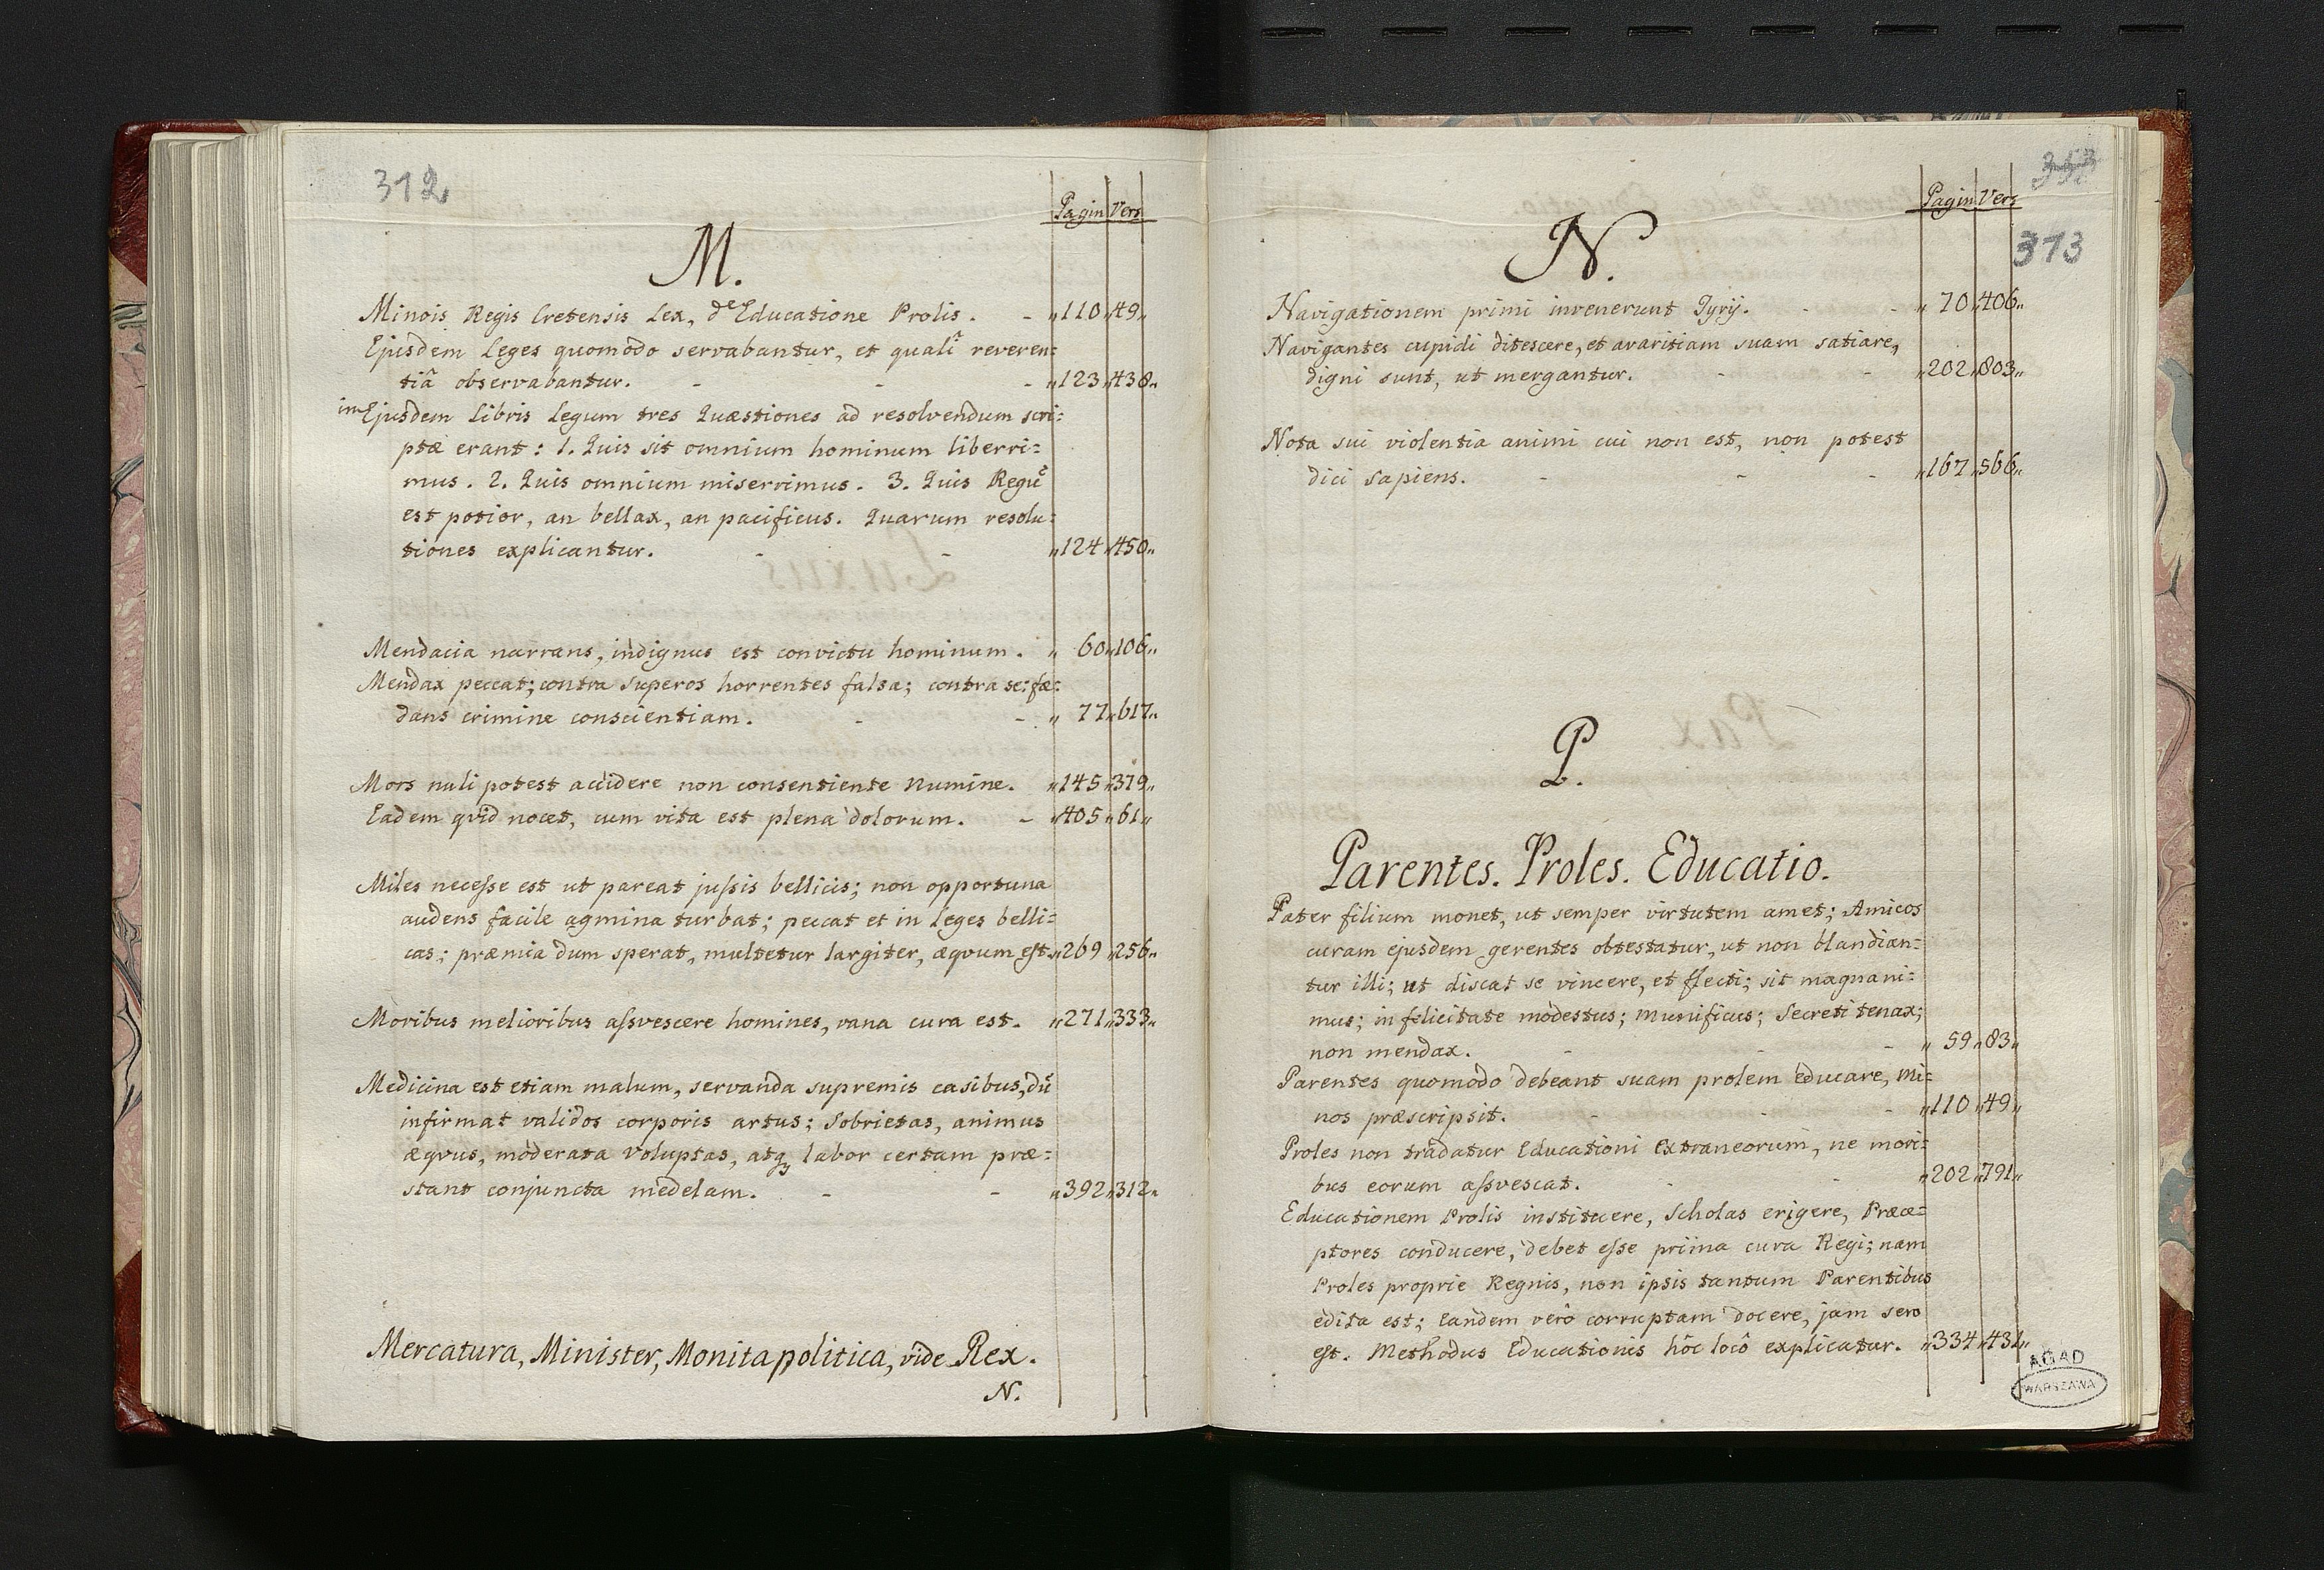 312
Pagin Vers
M.
Minois Regis Cretensis Lex, de Educatione Prolis. - „110„49„
Ejusdem Leges quomodo servabantur, et quali reveren:
tiâ observabantur. - - - „123„438„
in Ejusdem Libris Legum tres Quæstiones ad resolvendum scri:
ptæ erant: 1. Quis sit omnium hominum liberri:
mus. 2. Quis omnium miserrimus. 3. Quis Regu᷄
est potior, an bellax, an pacificus. Quarum resolu:
tiones explicantur. - - „124„450„
Mendacia narrans, indignus est convictu hominum. „ 60„106„
Mendax peccat; contra Superos horrentes falsa; contra se: fæ:
dans crimine conscientiam. - - „ 77„617„
Mors nuli potest accidere non consentiente Numine. „145„379„
Eadem qvid nocet, cum vita est plena dolorum. - „405„61„
Miles necesse est ut pareat jussis bellicis; non opportuna
audens facile agmina turbat; peccat et in Leges belli:
cas; præmia dum sperat, multetur largiter, æqvum est. „269„256„
Moribus melioribus assvescere homines, vana cura est. „271„333„
Medicina est etiam malum, servanda supremis casibus, du᷄
infirmat validos corporis artus; Sobrietas, animus
æqvus, moderata Voluptas, atqꝫ labor certam præ:
stant conjuncta medelam. - - „392„312„
Mercatura, Minister, Monita politica, vide Rex.
N.
353
Pagin Vers
313
N.
Navigationem primi invenerunt Tyrij. - - „ 70„406„
Navigantes cupidi ditescere, et avaritiam suam satiare,
digni sunt, ut mergantur. - - „202„803„
Nota sui violentia animi cui non est, non potest
dici Sapiens. - - - „167„566„
P.
Parentes. Proles. Educatio.
Pater filium monet, ut semper virtutem amet; Amicos
curam ejusdem gerentes obtestatur, ut non blandian:
tur illi; ut discat se vincere, et flecti; sit magnani:
mus; in felicitate modestus; munificus; Secreti tenax;
non mendax. - - - „ 59„83„
Parentes quomodo debeant suam prolem educare, Mi:
nos præscripsit. - - - „110„49„
Proles non tradatur Educationi Extraneorum, ne mori:
bus eorum assvescat. - - „202„791„
Educationem Prolis instituere, Scholas erigere, Præce:
ptores conducere, debet esse prima cura Regi; nam
Proles proprie Regnis, non ipsis tantum Parentibus
edita est; Eandem verò corruptam docere, jam sero
est. Methodus Educationis hôc locô explicatur. „334„431„
AGAD
WARSZAWA